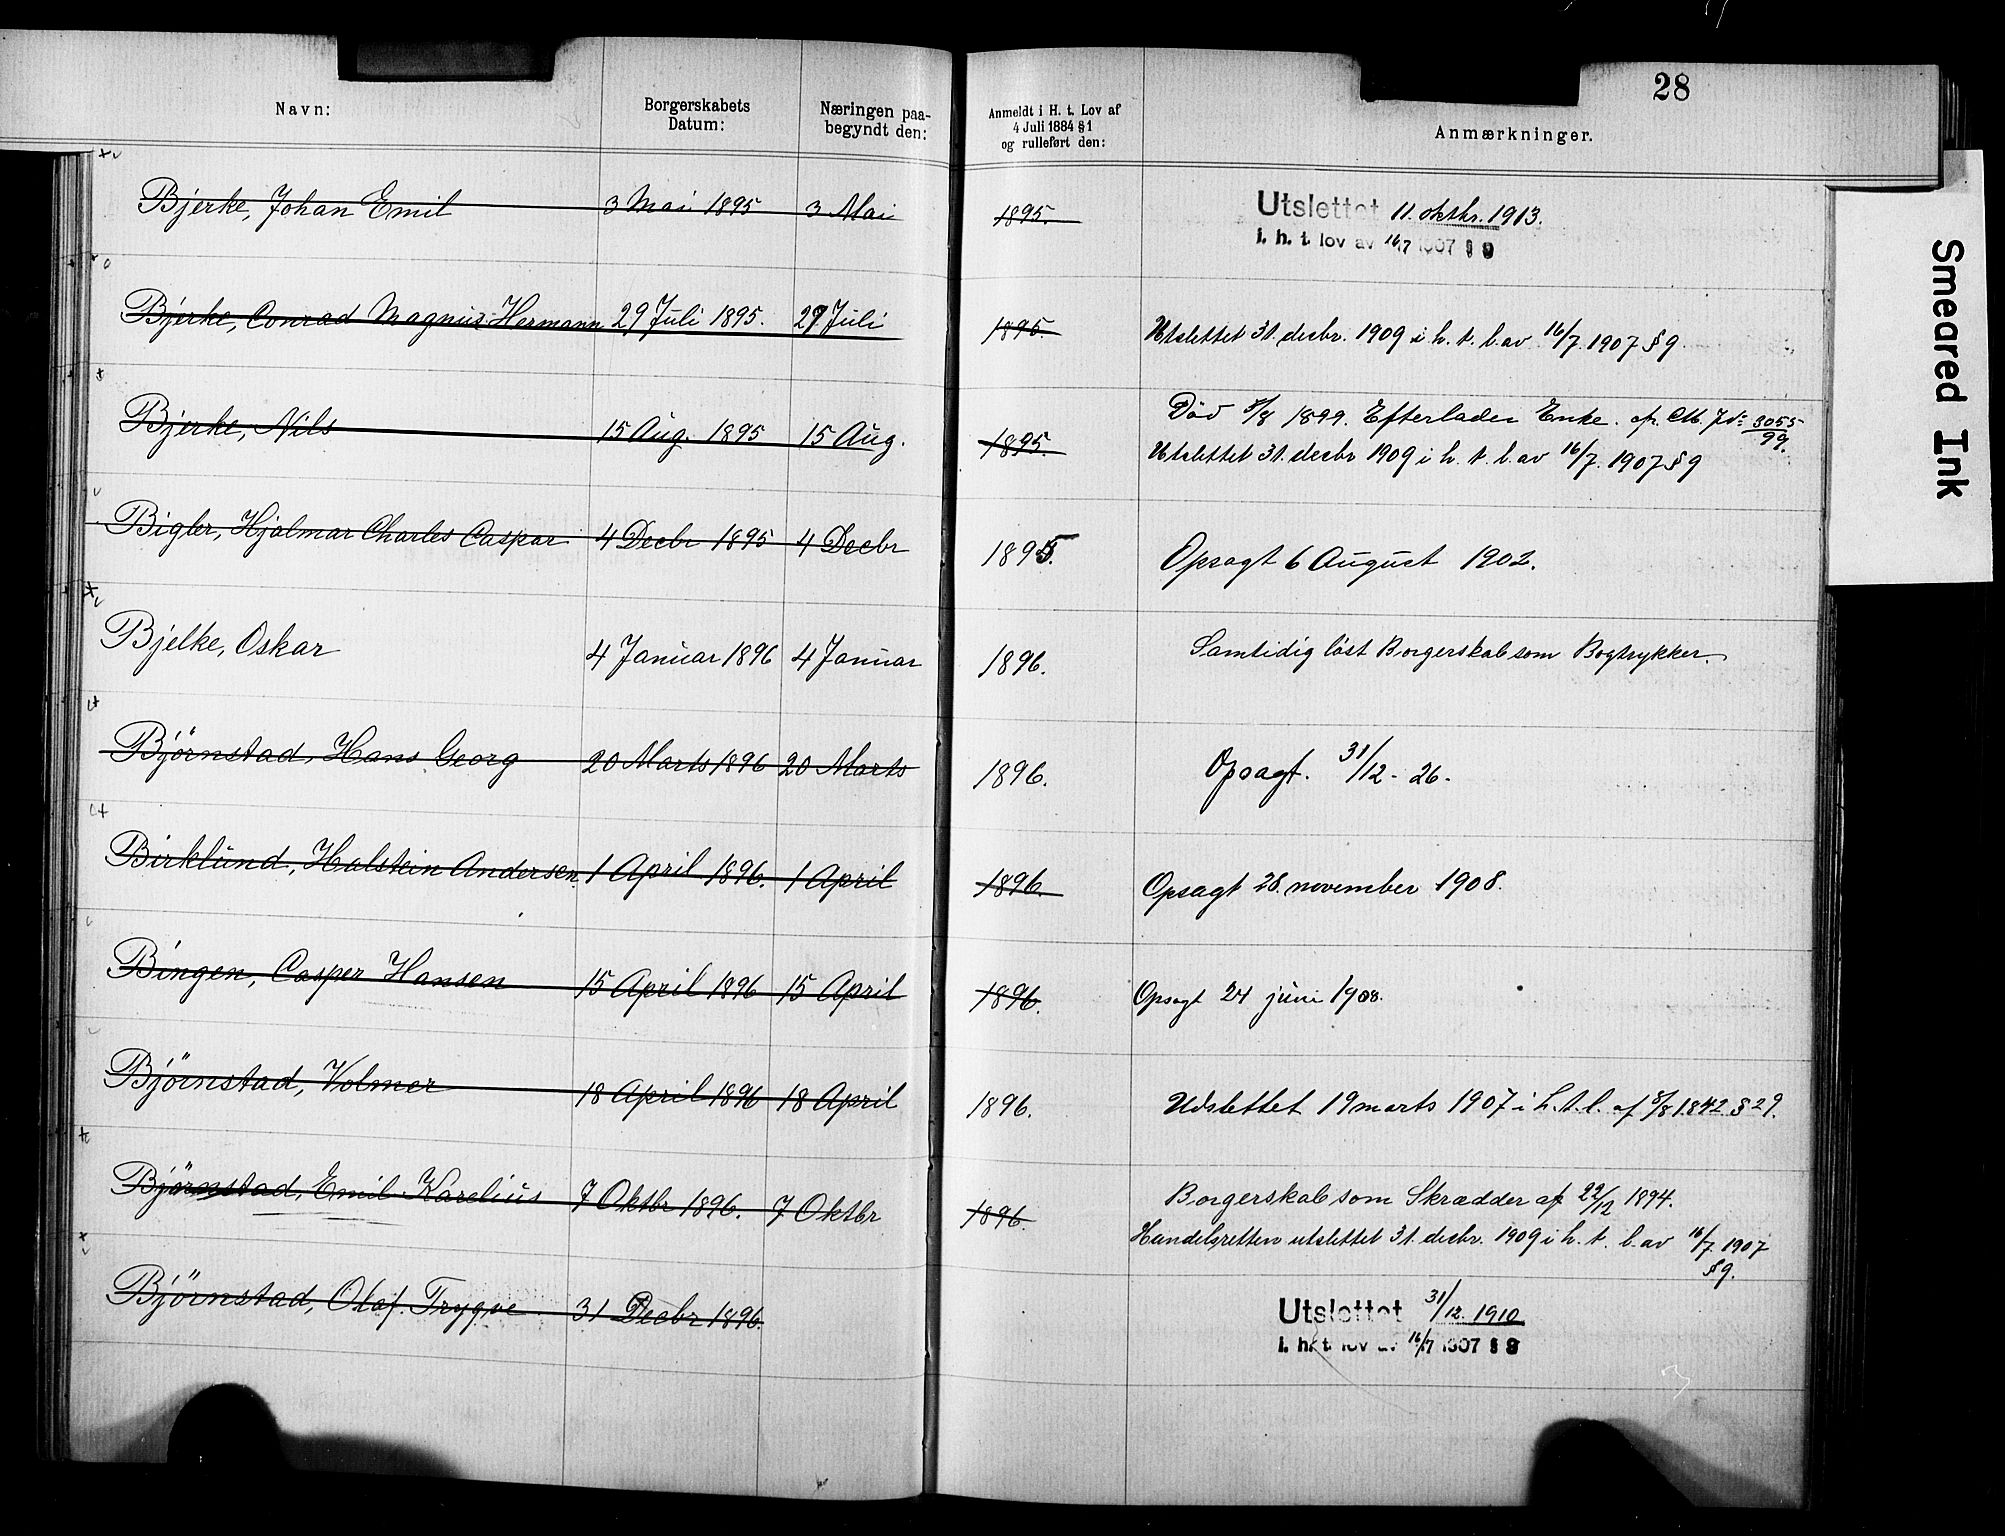 28
Navn: Borgerskabets Datum: Næringen paabegyndt den: Anmeldt i H. t. Lov af 4 Juli 1884 § 1 og rulleført den: Anmærkninger.
Bjerke, Johan Emil 3 Mai 1895 3 Mai 1895. Utslettet 11. oktbr. 1913.
i. h. t. lov av 16/7 1907 § 9
Bjerke, Conrad Magnus Hermann 29 Juli 1895. 29 Juli 1895. Utslettet 31. decbr. 1909 i h. t. l. av 16/7 1907 § 9.
Død 8/8 1899. Efterlader Enke. 3055/99.
Bjerke, Nils 15 Aug. 1895 15 Aug. 1895. Utslettet 31. decbr 1909 i h. t. l. av 16/7. 1907 § 9
Bigler, Hjalmar Charles Caspar 4 Decbr 1895 4 Decbr 1895. Opsagt 6 August 1902.
Bjelke, Oskar 4 Januar 1896 4 Januar 1896. Samtidig løst Borgerskab som Bogtrykker.
Bjørnstad, Hans Georg 20 Marts 1896 20 Marts 1896. Opsagt. 31/12 - 26.
Birklund, Halstein Andersen 1 April 1896. 1 April 1896. Opsagt 28. november 1908.
Bingen, Casper Hansen 15 April 1896 15 April 1896. Opsagt 24 juni 1908.
Bjørnstad, Volmer 18 April 1896 18 April 1896. Udslettet 19 marts 1907 i h. t. l. af 8/8 1842 § 29.
Bjørnstad, Emil Karelius 7 Oktbr 1896. 7 Oktbr 1896. Borgerskab som Skrædder af 22/12 1894.
Handelsretten utslettet 31. decbr. 1909 i h. t. l. av 16/7. 1907
§ 9.
Bjørnstad, Olaf Trygve 31 Decbr 1896. Utslettet 31/12. 1910
i. h. t. lov av 16/7 1907 § 9
Smeared Ink